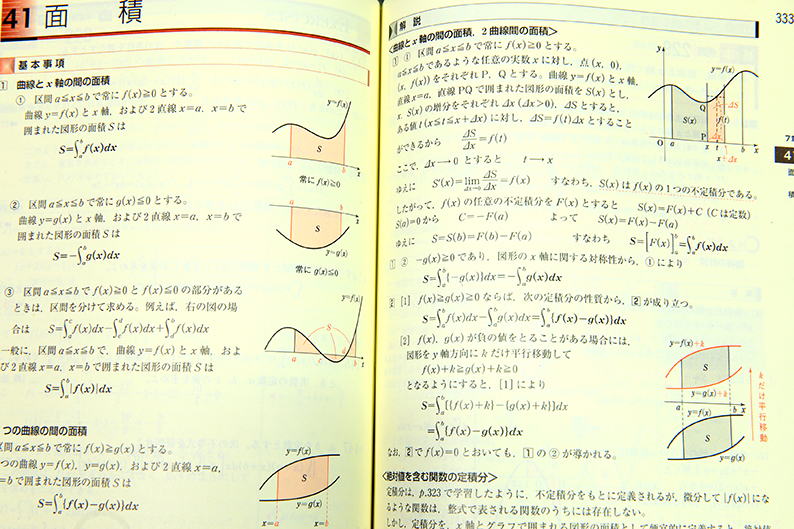 41 面 積
基本事項
1 曲線とx軸の間の面積
① 区間 a≦x≦b で常に f(x)≧0 とする。
曲線 y=f(x) と x軸, および2直線 x=a, x=b で
囲まれた図形の面積Sは
S=∫_a^b f(x)dx
y=f(x)
S
a b x
常に f(x)≧0
② 区間 a≦x≦b で常に g(x)≦0 とする。
曲線 y=g(x) と x軸, および2直線 x=a, x=b で
囲まれた図形の面積Sは
S=-∫_a^b g(x)dx
a b x
S
y=g(x)
常に g(x)≦0
③ 区間 a≦x≦b で f(x)≧0 と f(x)≦0 の部分がある
ときは, 区間を分けて求める。例えば, 右の図の場
合は S=∫_a^c f(x)dx-∫_c^d f(x)dx+∫_d^b f(x)dx
y=f(x)
S
a c d b x
一般に, 区間 a≦x≦b で, 曲線 y=f(x) と x軸, およ
び2直線 x=a, x=b で囲まれた図形の面積Sは
S=∫_a^b |f(x)|dx
つの曲線の間の面積
区間 a≦x≦b で常に f(x)≧g(x) とする。
つの曲線 y=f(x), y=g(x), および2直線 x=a,
=b で囲まれた図形の面積Sは
S=∫_a^b {f(x)-g(x)}dx
y=f(x)
S
y=g(x)
x=a x=b
333
解説
<曲線とx軸の間の面積, 2曲線間の面積>
1 ① 区間 a≦x≦b で常に f(x)≧0 とする。
a≦x≦b であるような任意の実数 x に対し, 点(x, 0),
(x, f(x)) をそれぞれ P, Q とする。曲線 y=f(x) と x軸,
直線 x=a, 直線 PQ で囲まれた図形の面積を S(x) とし,
x, S(x) の増分をそれぞれ Δx (Δx>0), ΔS とすると,
ある値 t (x≦t≦x+Δx) に対し, ΔS=f(t)Δx とすること
ができるから ΔS/Δx=f(t)
y
y=f(x)
Q
ΔS
S(x)
f(t)
P
Δx
O a x t b x
x+Δx
ここで, Δx→0 とすると t→x
ゆえに S'(x)=lim_{Δx→0} ΔS/Δx=f(x) すなわち, S(x) は f(x) の1つの不定積分である。
したがって, f(x) の任意の不定積分を F(x) とすると S(x)=F(x)+C (Cは定数)
S(a)=0 から C=-F(a) よって S(x)=F(x)-F(a)
ゆえに S=S(b)=F(b)-F(a) すなわち S=[F(x)]_a^b=∫_a^b f(x)dx
1 ② -g(x)≧0 であり, 図形の x軸に関する対称性から, ① により
S=∫_a^b {-g(x)}dx=-∫_a^b g(x)dx
2 [1] f(x)≧g(x)≧0 ならば, 次の定積分の性質から, 2 が成り立つ。
S=∫_a^b f(x)dx-∫_a^b g(x)dx=∫_a^b {f(x)-g(x)}dx
[2] f(x), g(x) が負の値をとることがある場合には,
図形を y軸方向に k だけ平行移動して
f(x)+k≧g(x)+k≧0
となるようにすると, [1] により
S=∫_a^b [{f(x)+k}-{g(x)+k}]dx
=∫_a^b {f(x)-g(x)}dx
なお, 2 で f(x)=0 とおいても, 1 の ② が導かれる。
y=f(x)+k
S
y=g(x)+k
a b x
y=f(x)
S
y=g(x)
kだけ平行移動
<絶対値を含む関数の定積分>
定積分は, p.323 で学習したように, 不定積分をもとに定義されるが, 微分して |f(x)| にな
るような関数は, 整式で表される関数のうちには存在しない。
41
面
積